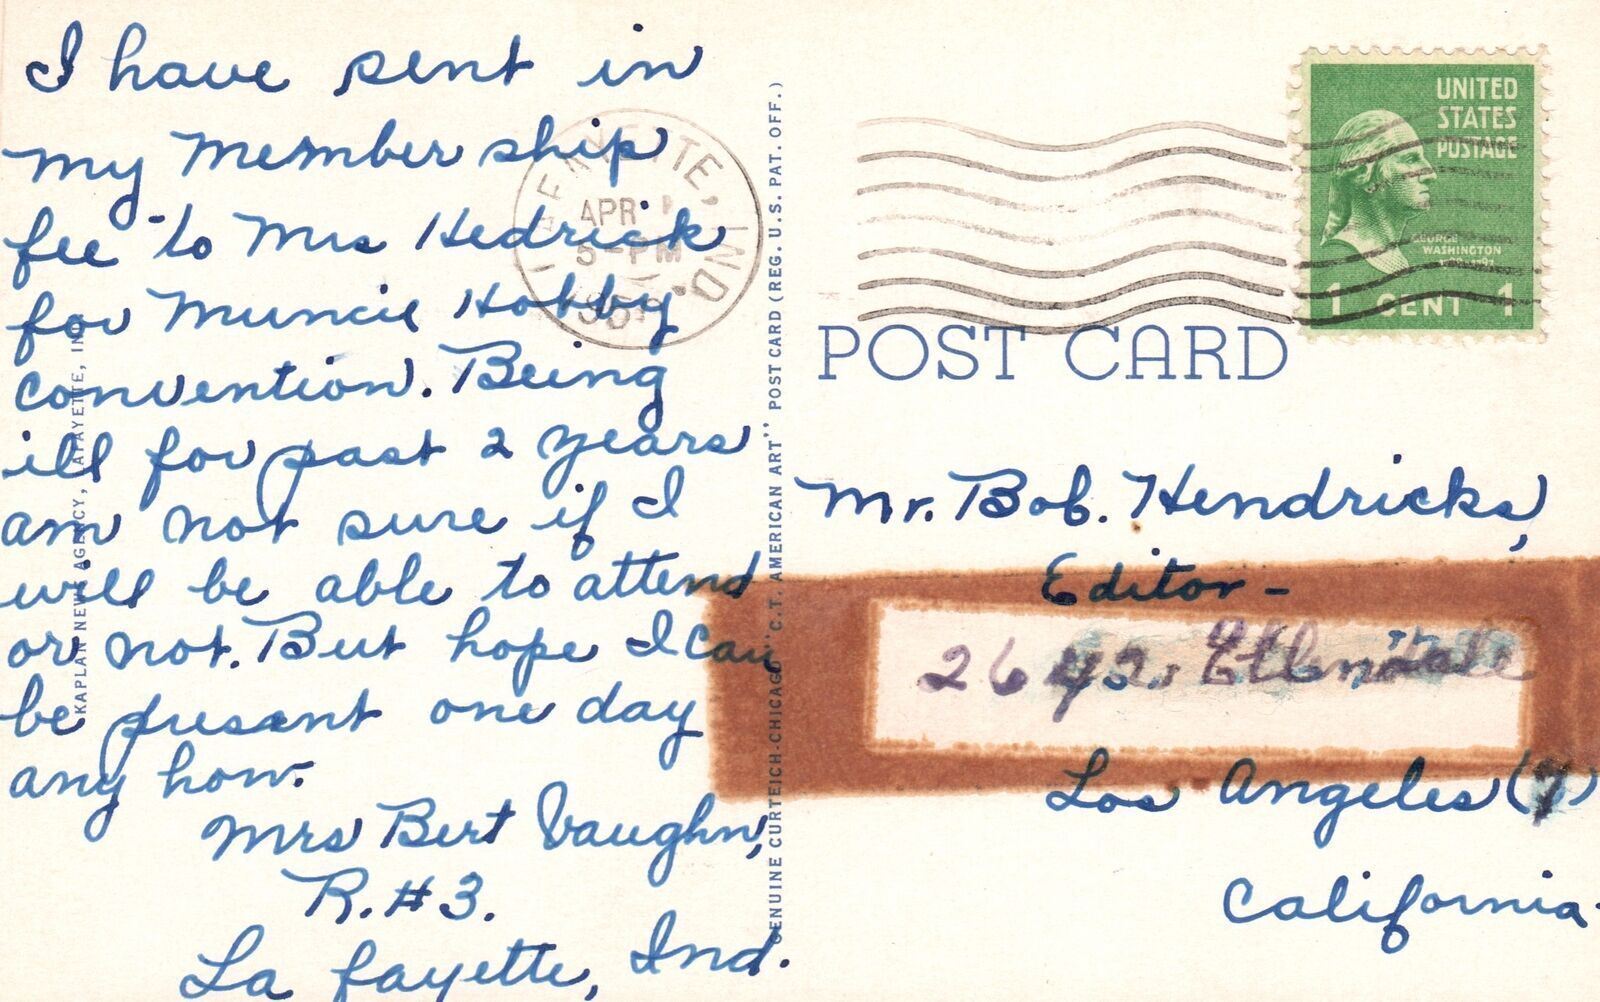 I have sent in
my Member ship
fee to Mrs Hedrick
for Muncie Hobby
Convention. Being
ill for past 2 years
am not sure if I
will be able to attend
or not. But hope I can
be present one day
any how.
Mrs Bert Vaughn,
R. #3.
La fayette, Ind.
KAPLAN NEWS AGENCY, LAFAYETTE, IND.
LAFAYETTE, IND.
APR
5-PM
GENUINE CURTEICH-CHICAGO "C.T. AMERICAN ART" POST CARD (REG. U.S. PAT. OFF.)
UNITED
STATES
POSTAGE
GEORGE
WASHINGTON
1 CENT 1
POST CARD
Mr. Bob. Hendricks,
Editor-
Los Angeles (7)
California.